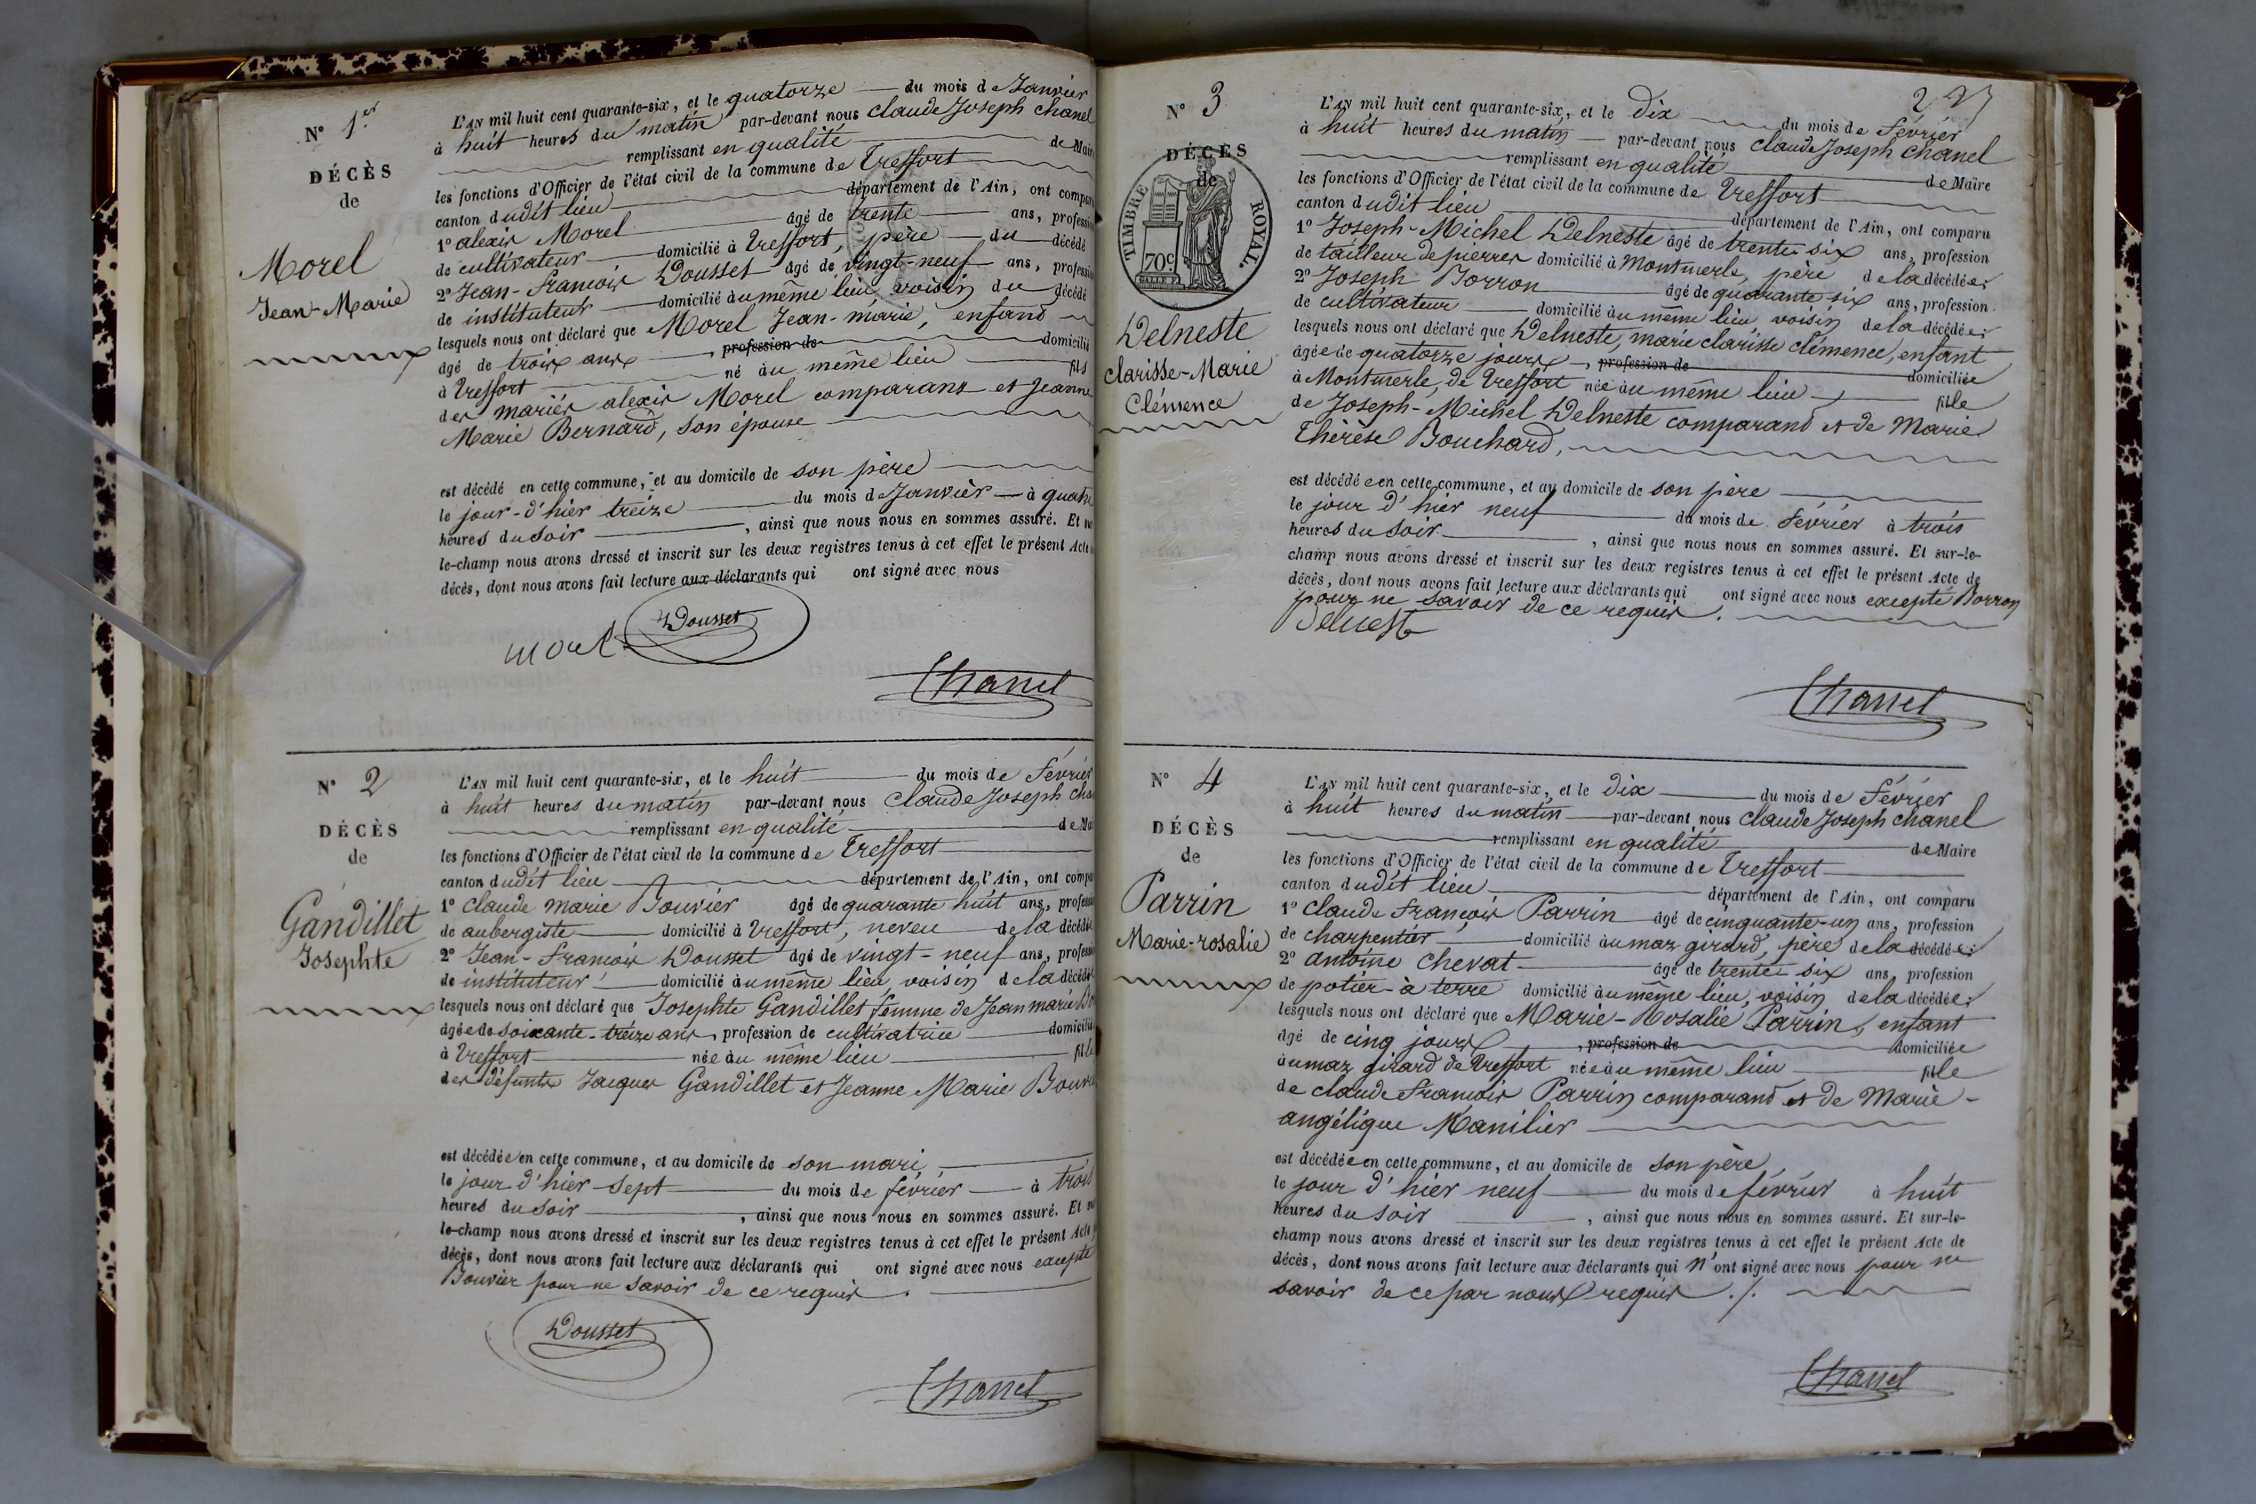 N° 1.er
DÉCÈS
de
Morel
Jean-Marie
L'AN mil huit cent quarante-six, et le quatorze du mois de Janvier
à huit heures du matin par-devant nous claude Joseph chanel
remplissant en qualité de Mair
les fonctions d'Officier de l'état civil de la commune de Treffort
canton dudit lieu département de l'Ain, ont compar
1° alexis Morel âgé de trente ans, professi
de cultivateur domicilié à Treffort, père du décédé
2° Jean-Francois Dousset âgé de vingt-neuf ans, professi
de instituteur domicilié au même lieu voisin du décédé
lesquels nous ont déclaré que Morel Jean-marie, enfand
âgé de troix ans, profession de domicilié
à Treffort né au même lieu fils
des mariés alexis Morel comparans et Jeanne
Marie Bernard, son épouse
est décédé en cette commune, et au domicile de son père
le jour-d'hier treize du mois de Janvier à quatre
heures du soir, ainsi que nous nous en sommes assuré. Et
le-champ nous avons dressé et inscrit sur les deux registres tenus à cet effet le présent Acte
décès, dont nous avons fait lecture aux déclarants qui ont signé avec nous
morel Dousset
Chanel
N° 2
DÉCÈS
de
Gandillet
Josephte
L'AN mil huit cent quarante-six, et le huit du mois de Février
à huit heures du matin par-devant nous claude Joseph cha
remplissant en qualité de Mai
les fonctions d'Officier de l'état civil de la commune de Treffort
canton dudit lieu département de l'Ain, ont compa
1° claude marie Bouvier âgé de quarante huit ans, profess
de aubergiste domicilié à Treffort, neveu de la décédé
2° Jean-Francois Dousset âgé de vingt-neuf ans, profess
de instituteur domicilié au même lieu, voisin de la décédé
lesquels nous ont déclaré que Josephte Gandillet femme de Jean marie
âgée de soixante-treize ans, profession de cultivatrice domicilié
à Treffort née au même lieu fille
des défunts Jacques Gandillet et Jeanne Marie Bouvi
est décédée en cette commune, et au domicile de son mari,
le jour d'hier sept du mois de février à trois
heures du soir, ainsi que nous nous en sommes assuré. Et
le-champ nous avons dressé et inscrit sur les deux registres tenus à cet effet le présent Acte
décès, dont nous avons fait lecture aux déclarants qui ont signé avec nous excepté
Bouvier pour ne savoir de ce requis.
Dousset
Chanel
N° 3
DÉCÈS
de
TIMBRE ROYAL.
70c
Delneste
clarisse-Marie
Clémence
L'AN mil huit cent quarante-six, et le Dix du mois de Février
à huit heures du matin par-devant nous claude Joseph chanel
remplissant en qualité de Maire
les fonctions d'Officier de l'état civil de la commune de Treffort
canton dudit lieu département de l'Ain, ont comparu
1° Joseph-Michel Delneste âgé de trente six ans, profession
de tailleur de pierres domicilié à Montmerle, père de la décédée;
2° Joseph Borron âgé de quarante six ans, profession
de cultivateur domicilié au même lieu voisin de la décédée;
lesquels nous ont déclaré que Delneste, marie clarisse clémence, enfant
âgée de quatorze jours, profession de domiciliée
à Montmerle, de Treffort née au même lieu fille
de Joseph-Michel Delneste comparand et de Marie
Thérèse Bouchard,
est décédée en cette commune, et au domicile de son père
le jour d'hier neuf du mois de Février à trois
heures du soir, ainsi que nous nous en sommes assuré. Et sur-le-
champ nous avons dressé et inscrit sur les deux registres tenus à cet effet le présent Acte de
décès, dont nous avons fait lecture aux déclarants qui ont signé avec nous excepté Borron
pour ne savoir de ce requis.
Delneste
Chanel
N° 4
DÉCÈS
de
Parrin
Marie-rosalie
L'AN mil huit cent quarante-six, et le Dix du mois de Février
à huit heures du matin par-devant nous claude Joseph chanel
remplissant en qualité de Maire
les fonctions d'Officier de l'état civil de la commune de Treffort
canton dudit lieu département de l'Ain, ont comparu
1° claude françois Parrin âgé de cinquante-un ans, profession
de charpentier domicilié au maz girard, père de la décédée;
2° antoine chevat âgé de trente six ans, profession
de potier-à terre domicilié au même lieu, voisin de la décédée;
lesquels nous ont déclaré que Marie-Rosalie Parrin, enfant
âgé de cinq jours, profession de domiciliée
au maz girard de Treffort née au même lieu fille
de claude francois Parrin comparand et de Marie-
angélique Manilier
est décédée en cette commune, et au domicile de son père
le jour d'hier neuf du mois de février à huit
heures du soir, ainsi que nous nous en sommes assuré. Et sur-le-
champ nous avons dressé et inscrit sur les deux registres tenus à cet effet le présent Acte de
décès, dont nous avons fait lecture aux déclarants qui n'ont signé avec nous pour ne
savoir de ce par nous requis ./.
Chanel